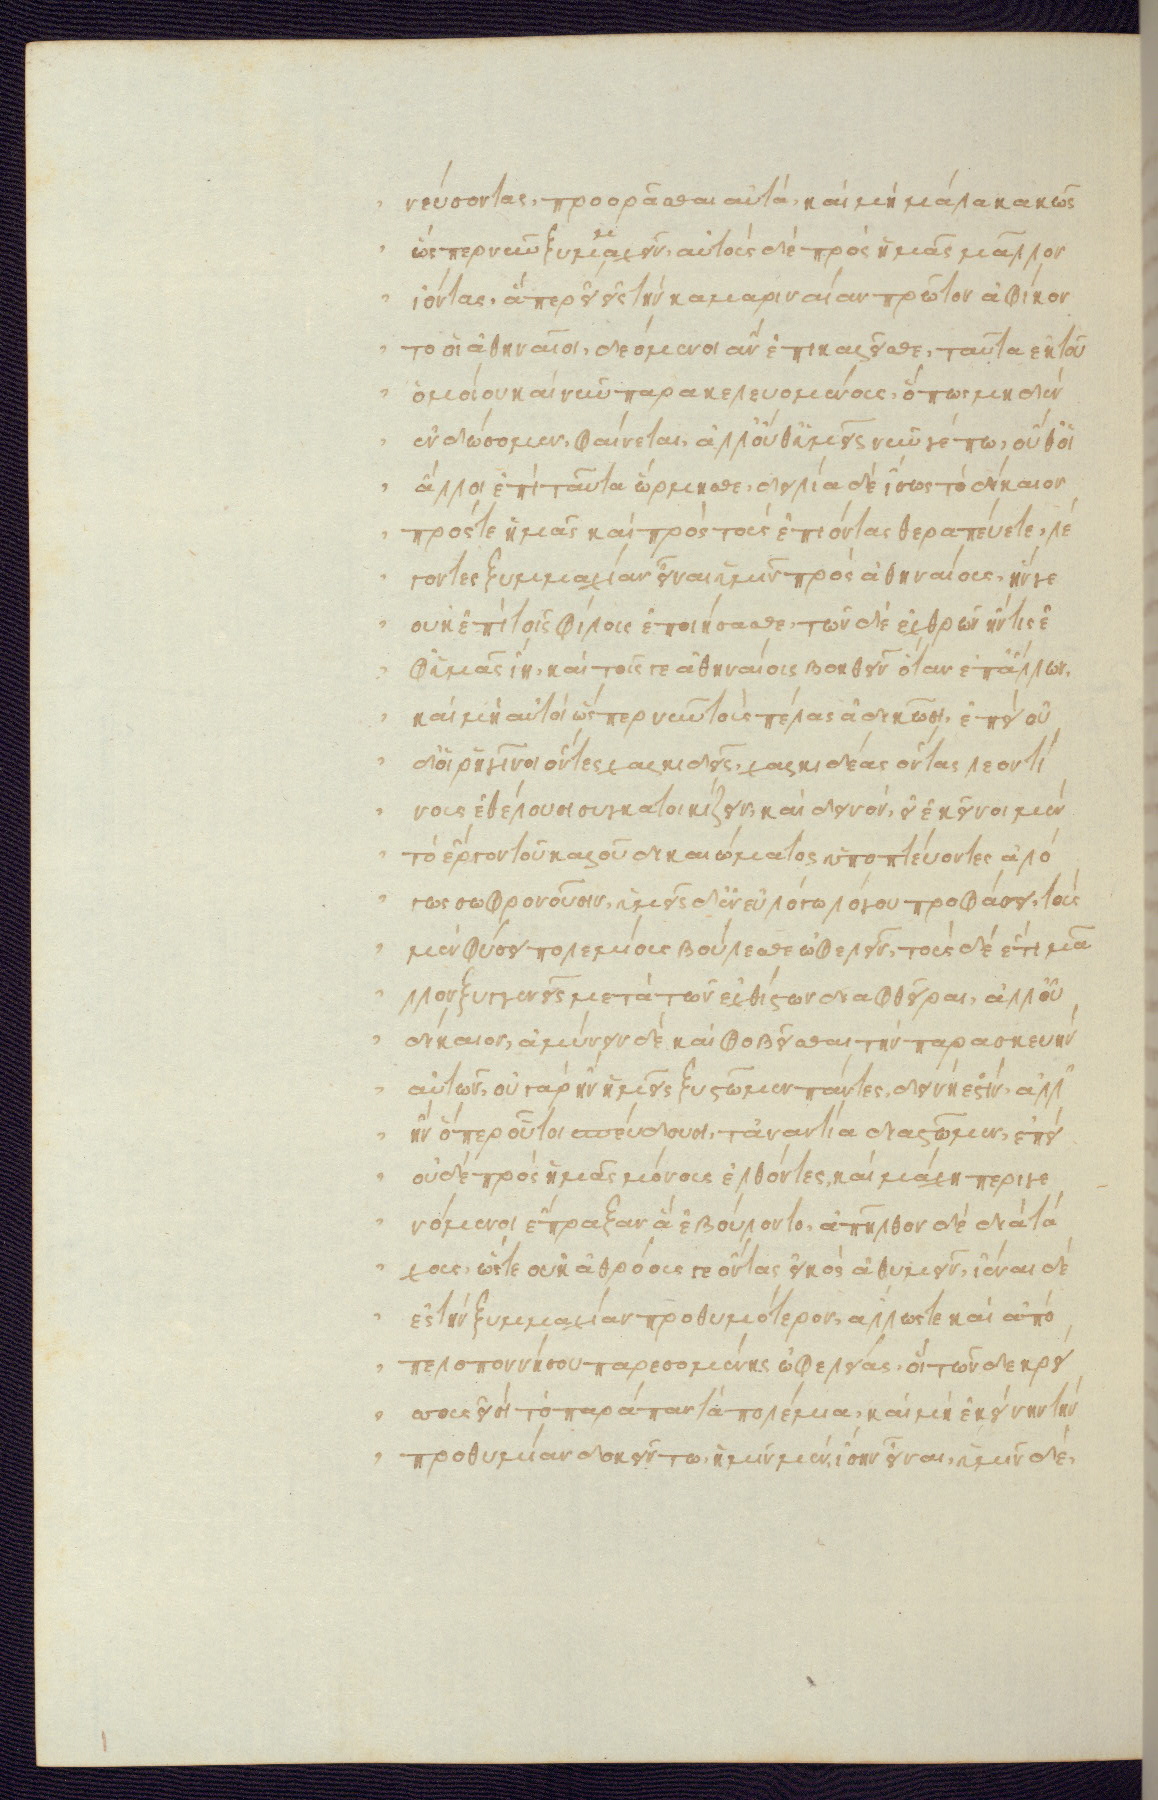 νεύσοντας, προορᾶσθαι αὐτά, καὶ μὴ μάλα κακῶς
ὥσπερ νῦν ξυμμαχεῖν, αὐτοὺς δὲ πρὸς ἡμᾶς μᾶλλον
ἰόντας, ἅπερ εἰ ἐς τὴν καμαριναίαν πρῶτον ἀφίκον
το οἱ ἀθηναῖοι, δεόμενοι ἂν ἐπικαλεῖσθε, ταῦτα ἐκ τοῦ
ὁμοίου καὶ νῦν παρακελευομένους, ὅπως μηδὲν
ἐνδώσομεν, φαίνεται, ἀλλ' οὔθ' ὑμεῖς νῦν γέ πω, οὔθ' οἱ
ἄλλοι ἐπὶ ταῦτα ὥρμησθε, δειλία δὲ ἴσως τὸ δίκαιον
πρός τε ἡμᾶς καὶ πρὸς τοὺς ἐπιόντας θεραπεύετε, λέ
γοντες ξυμμαχίαν εἶναι ὑμῖν πρὸς ἀθηναίους, ἥν γε
οὐκ ἐπὶ τοῖς φίλοις ἐποιήσασθε, τῶν δὲ ἐχθρῶν ἤν τις ἐ
φ' ὑμᾶς ἴη, καὶ τοῖς γε ἀθηναίοις βοηθεῖν ὅταν ἐπ' ἄλλων,
καὶ μὴ αὐτοὶ ὥσπερ νῦν τοὺς πέλας ἀδικῶσι, ἐπεὶ οὐ
δ' οἱ ῥηγῖνοι ὄντες χαλκιδεῖς, χαλκιδέας ὄντας λεοντί
νους ἐθέλουσι συγκατοικίζειν, καὶ δεινόν, εἰ ἐκεῖνοι μὲν
τὸ ἔργον τοῦ καλοῦ δικαιώματος ὑποπτεύοντες ἀλό
γως σωφρονοῦσιν, ὑμεῖς δ' ἂν εὐλόγω λόγου προφάσει, τοὺς
μὲν φύσει πολεμίους βούλεσθε ὠφελεῖν, τοὺς δὲ ἔτι μᾶ
λλον ξυγγενεῖς μετὰ τῶν ἐχθίστων διαφθεῖραι, ἀλλ' οὐ
δίκαιον, ἀμύνειν δὲ καὶ φοβεῖσθαι τὴν παρασκευὴν
αὐτῶν, οὐ γὰρ ἢν ἡμεῖς ξυστῶμεν πάντες, δεινή ἐστιν, ἀλλ'
ἢν ὅπερ οὗτοι σπεύδουσι, τἀναντία διαστῶμεν, ἐπεὶ
οὐδὲ πρὸς ἡμᾶς μόνους ἐλθόντες, καὶ μάχη περιγε
νόμενοι ἔπραξαν ἃ ἐβούλοντο, ἀπῆλθον δὲ διὰ τά
χους, ὥστε οὐκ ἀθρόους γε ὄντας εἰκὸς ἀθυμεῖν, ἰέναι δὲ
ἐς τὴν ξυμμαχίαν προθυμότερον, ἄλλως τε καὶ ἀπὸ
πελοποννήσου παρεσομένης ὠφελείας, οἳ τῶν δε κρεί
σσους εἰσὶ τὸ παράπαν τὰ πολέμια, καὶ μὴ ἐκείνην τὴν
προθυμίαν δοκεῖν τω, ἡμῖν μὲν ἴσην εἶναι, ὑμῖν δὲ,